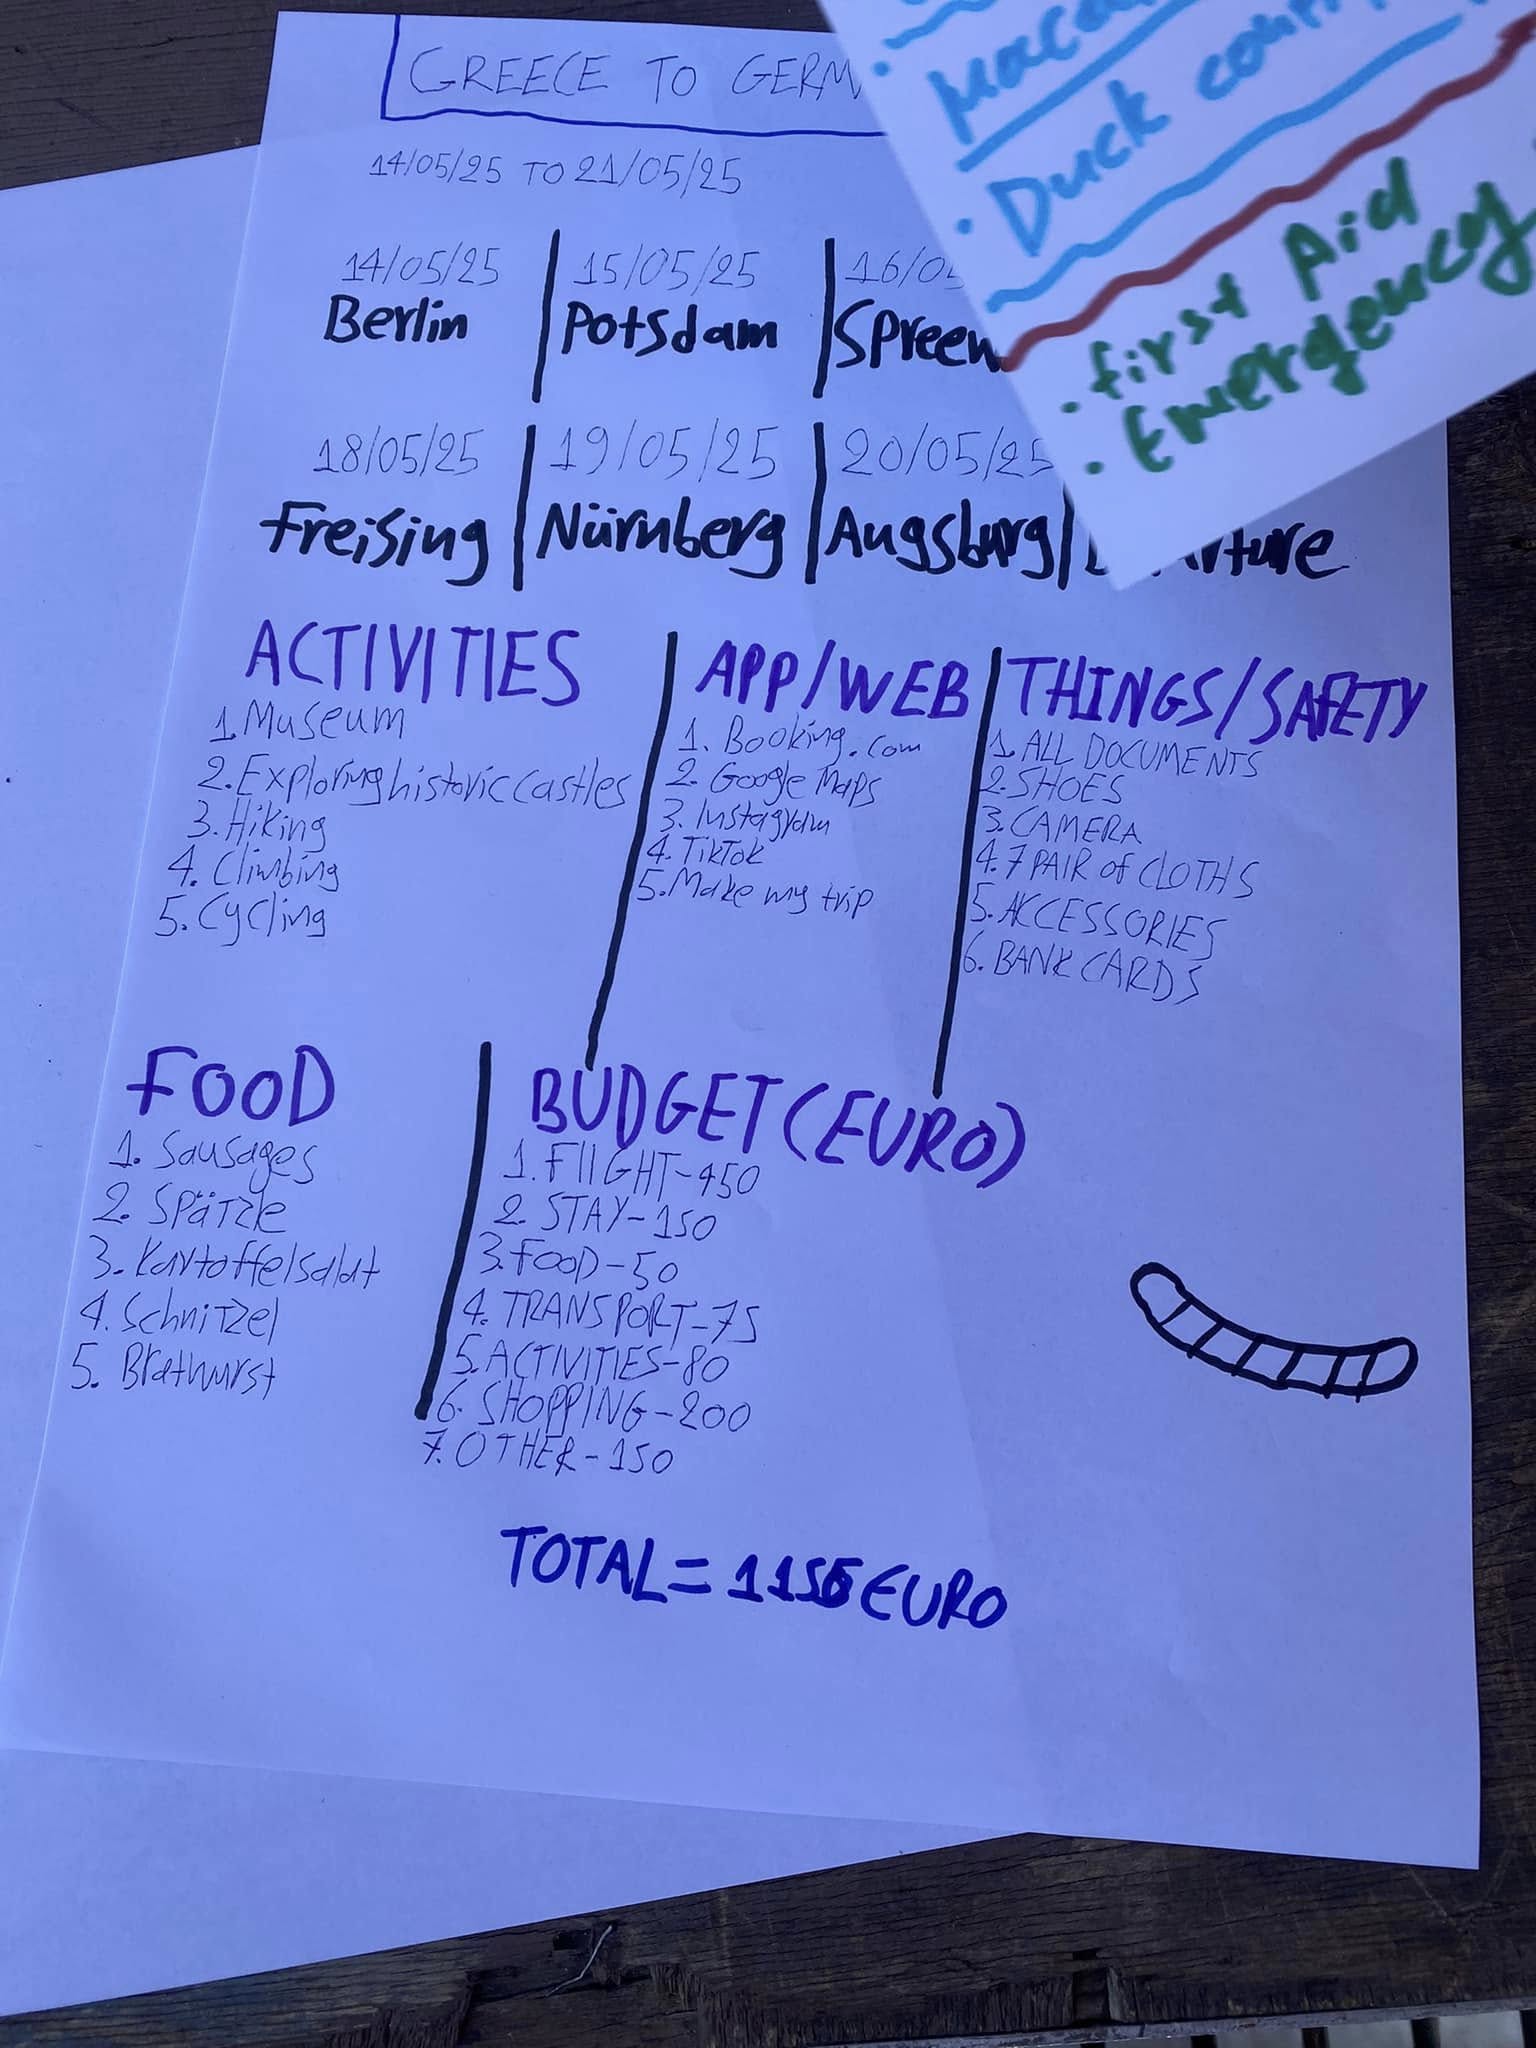 GREECE TO GERM
14/05/25 TO 21/05/25
14/05/25 15/05/25 16/05
Berlin Potsdam Spreew
18/05/25 19/05/25 20/05/25
Freising Nürnberg Augsburg
ACTIVITIES
1. Museum
2. Exploring historic castles
3. Hiking
4. Climbing
5. Cycling
APP/WEB
1. Booking.com
2. Google Maps
3. Instagram
4. TikTok
5. Make my trip
THINGS/SAFETY
1. ALL DOCUMENTS
2. SHOES
3. CAMERA
4. 7 PAIR of CLOTHS
5. ACCESSORIES
6. BANK CARDS
FOOD
1. Sausages
2. Spätzle
3. Kartoffelsalat
4. Schnitzel
5. Bratwurst
BUDGET (EURO)
1. FlIGHT-450
2. STAY-150
3. FOOD-50
4. TRANSPORT-75
5. ACTIVITIES-80
6. SHOPPING-200
7. OTHER-150
TOTAL = 1155 EURO
• Duck
• first Aid
• Emergency